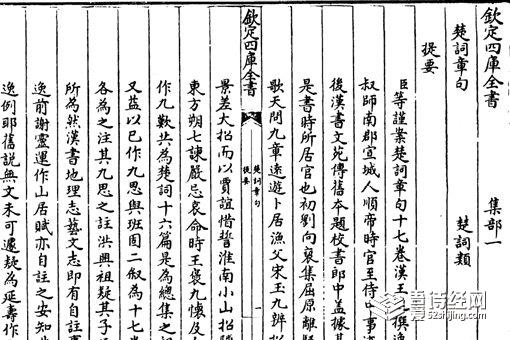 欽定四庫全書 集部一
楚詞章句 楚詞類
提要
臣等謹案楚詞章句十七卷漢王逸撰逸
叔師南郡宜城人順帝時官至侍中事迹
後漢書文苑傳舊本題校書郎中蓋據其
是書時所居官也初劉向裒集屈原離騷
歌天問九章遠遊卜居漁父宋玉九辨招
欽定四庫全書
楚詞章句
提要
一
景差大招而以賈誼惜誓淮南小山招隱
東方朔七諫嚴忌哀命時王褒九懷及
作九歎共為楚詞十六篇是為總集之祖
又益以已作九思與班固二敘為十七卷
各為之註其九思之註洪興祖疑其子
所為然漢書地理志藝文志即有自註事
逸前謝靈運作山居賦亦自註之安知
逸例耶舊說無文未可遽疑為延壽作
诗经网
52shijing.com